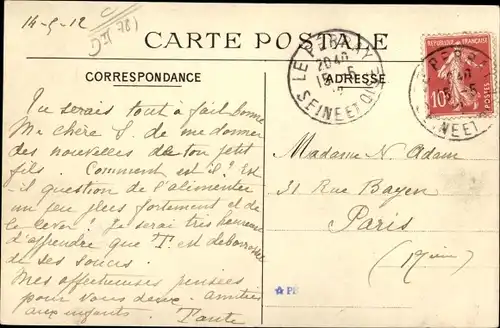 14-5-12
CARTE POSTALE
CORRESPONDANCE
ADRESSE
LE PERRAY
20 40
15-5
12
SEINE ET OISE
REPUBLIQUE FRANÇAISE
10
POSTES
Tu serais tout à fait bonne
Ma chère J. de me donner
des nouvelles de ton petit
fils. Comment est il? Est-
il question de l'alimenter
un peu plus fortement et de
le lever? Je serai très heureuse
d'apprendre que P. est débarrassée
de ses soucis.
Mes affectueuses pensées
pour vous deux. amitiés
aux enfants. Tante
Madame N. Adam
31 Rue Bayen
Paris